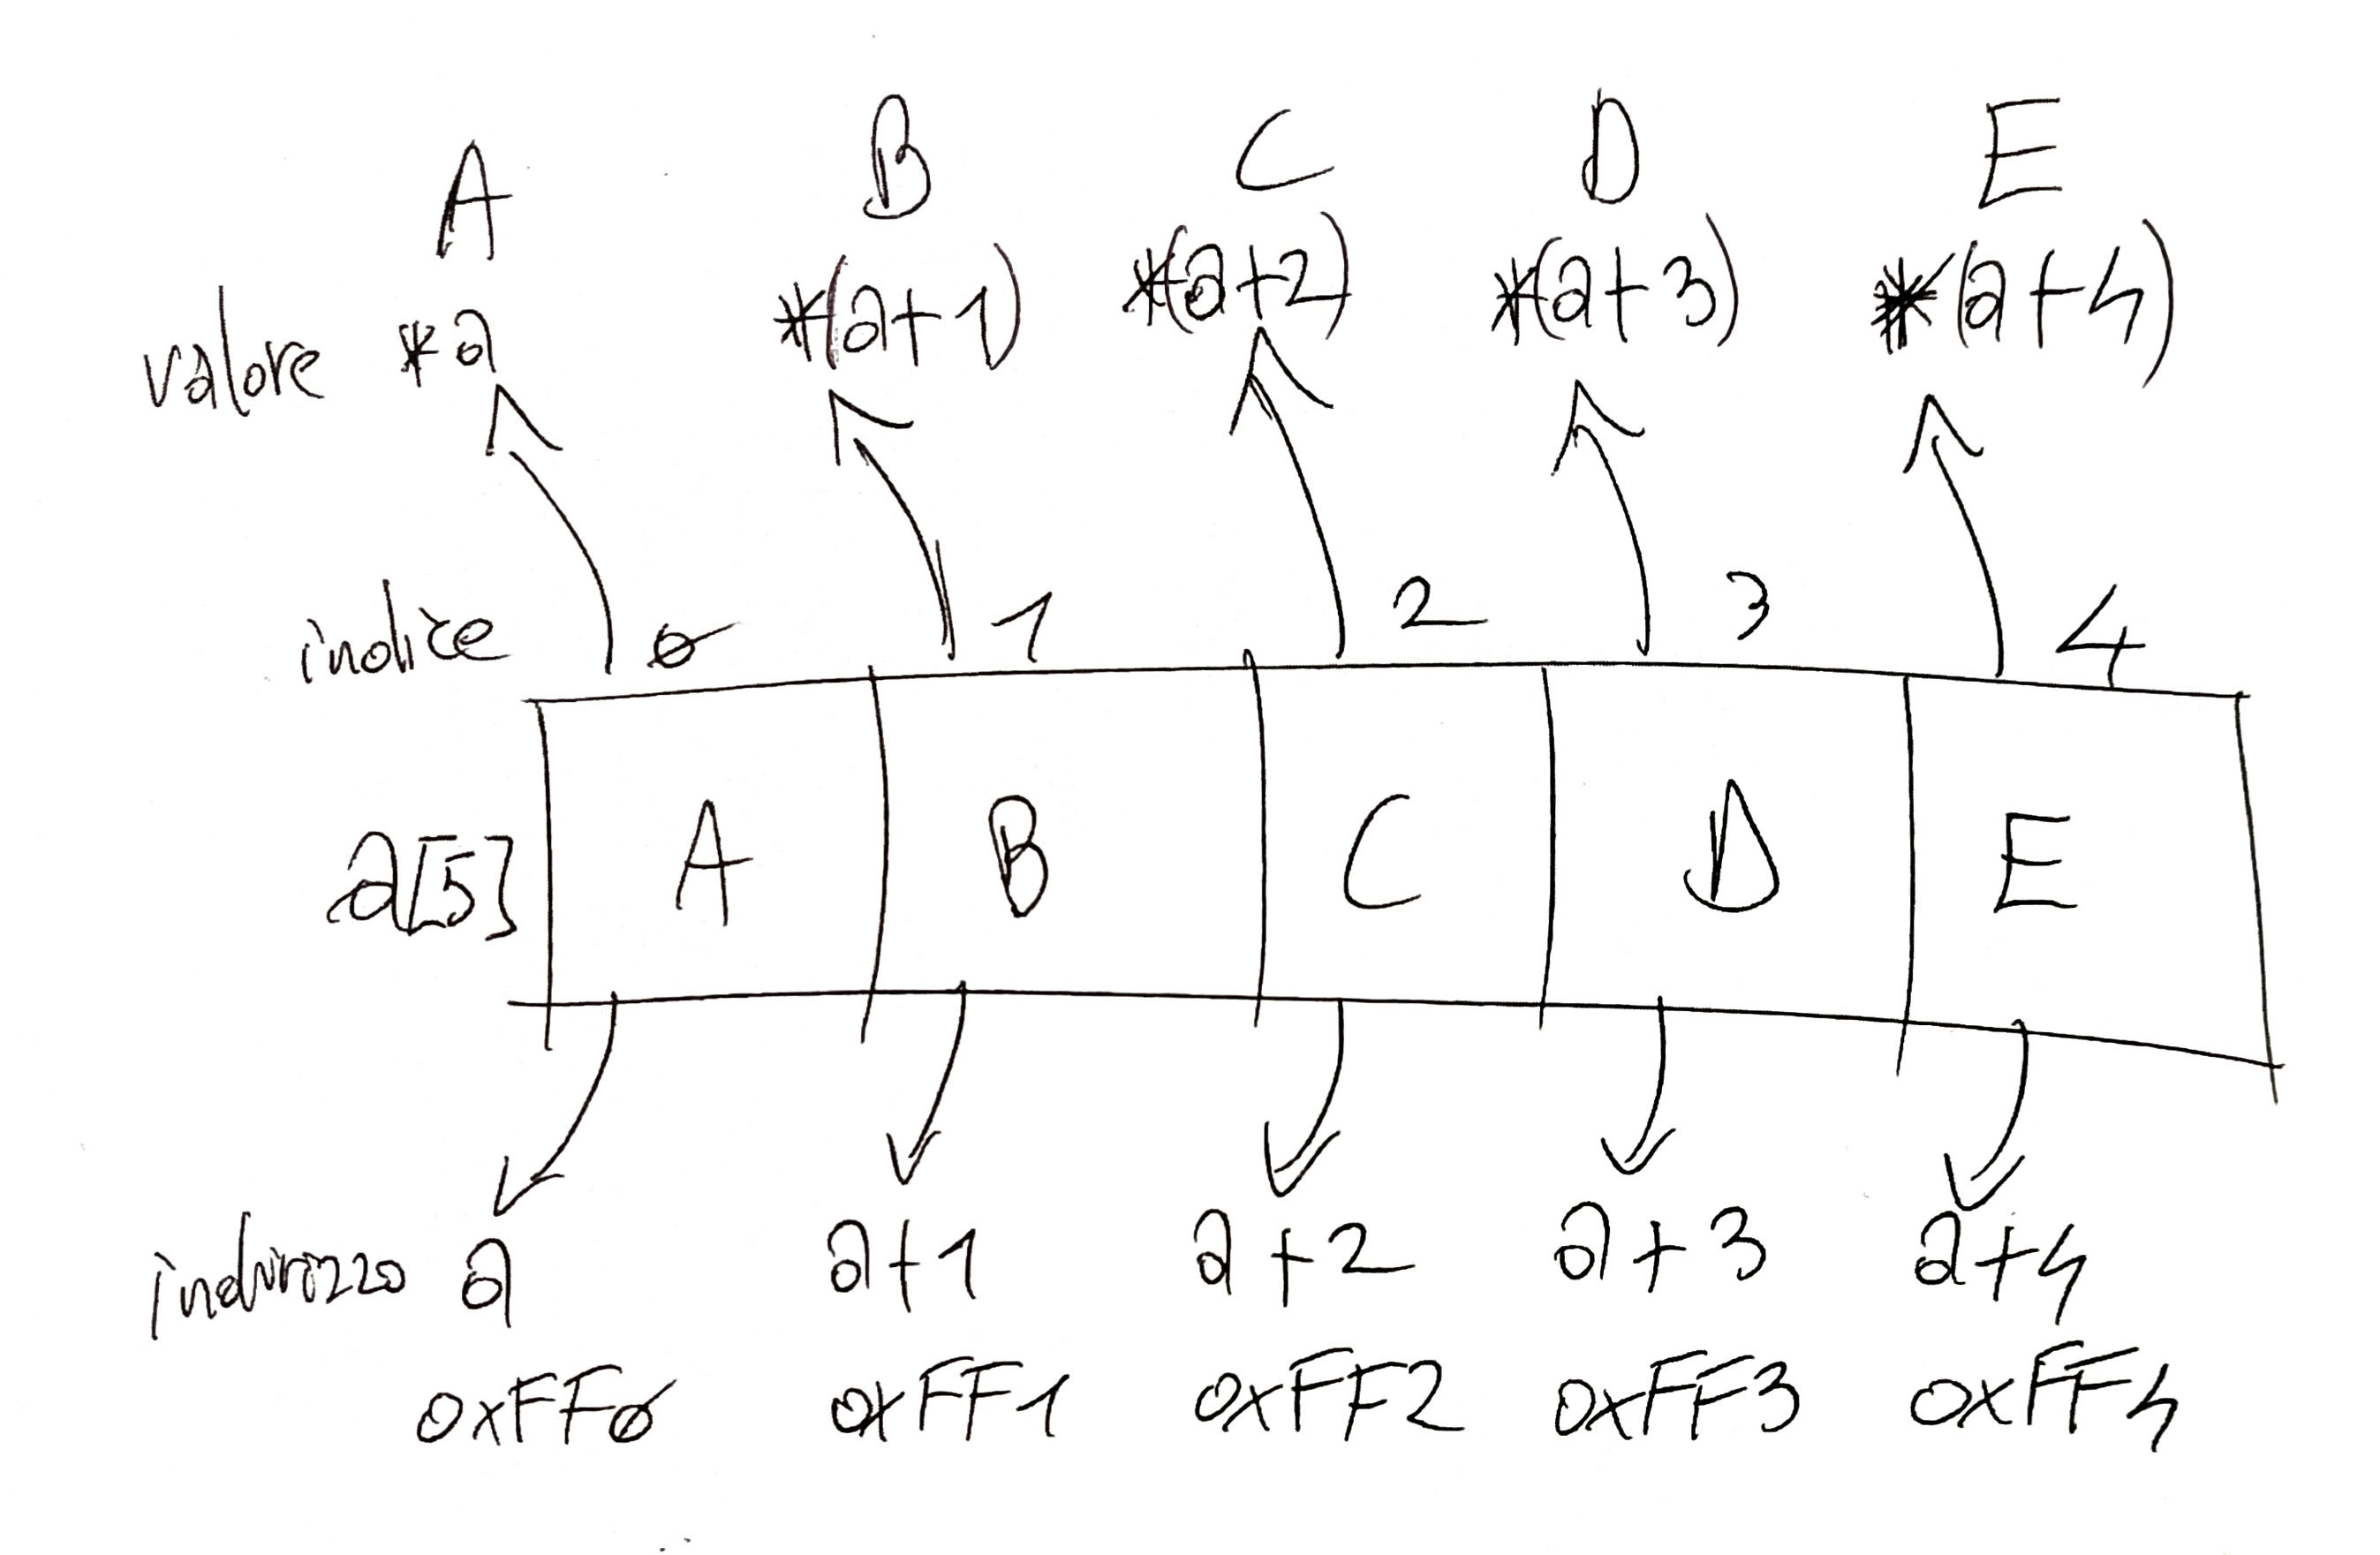 A B C D E
valore *a *(a+1) *(a+2) *(a+3) *(a+4)
indice 0 1 2 3 4
a[5] A B C D E
indirizzo a a+1 a+2 a+3 a+4
0xFF0 0xFF1 0xFF2 0xFF3 0xFF4